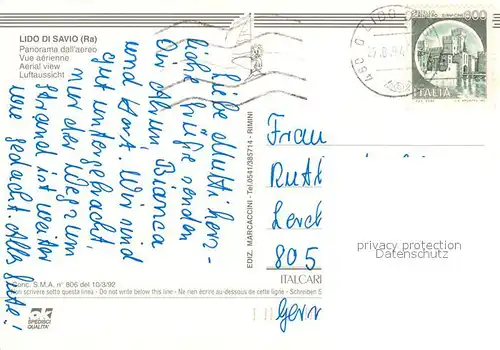 LIDO DI SAVIO (Ra)
Panorama dall'aereo
Vue aérienne
Aerial view
Luftaussicht
Liebe Mutti herz-
liche Grüße senden
Dir Bianca
und Horst. Wir sind
gut untergebracht
nur der Weg zum
Strand ist weiter
wie gedacht. Alles Gute!
Conc. S.M.A. n° 806 del 10/3/92
Non scrivere sotto questa linea - Do not write below this line - Ne rien écrire au-dessous de cette ligne - Schreiben S
SPEDISCI
QUALITA'
EDIZ. MARCACCINI - Tel.0541/385714 - RIMINI
800
ITALIA
Frau
Ruth
Lerch
805
privacy protection
VEDAMO.COM
ITALCARI
Germ